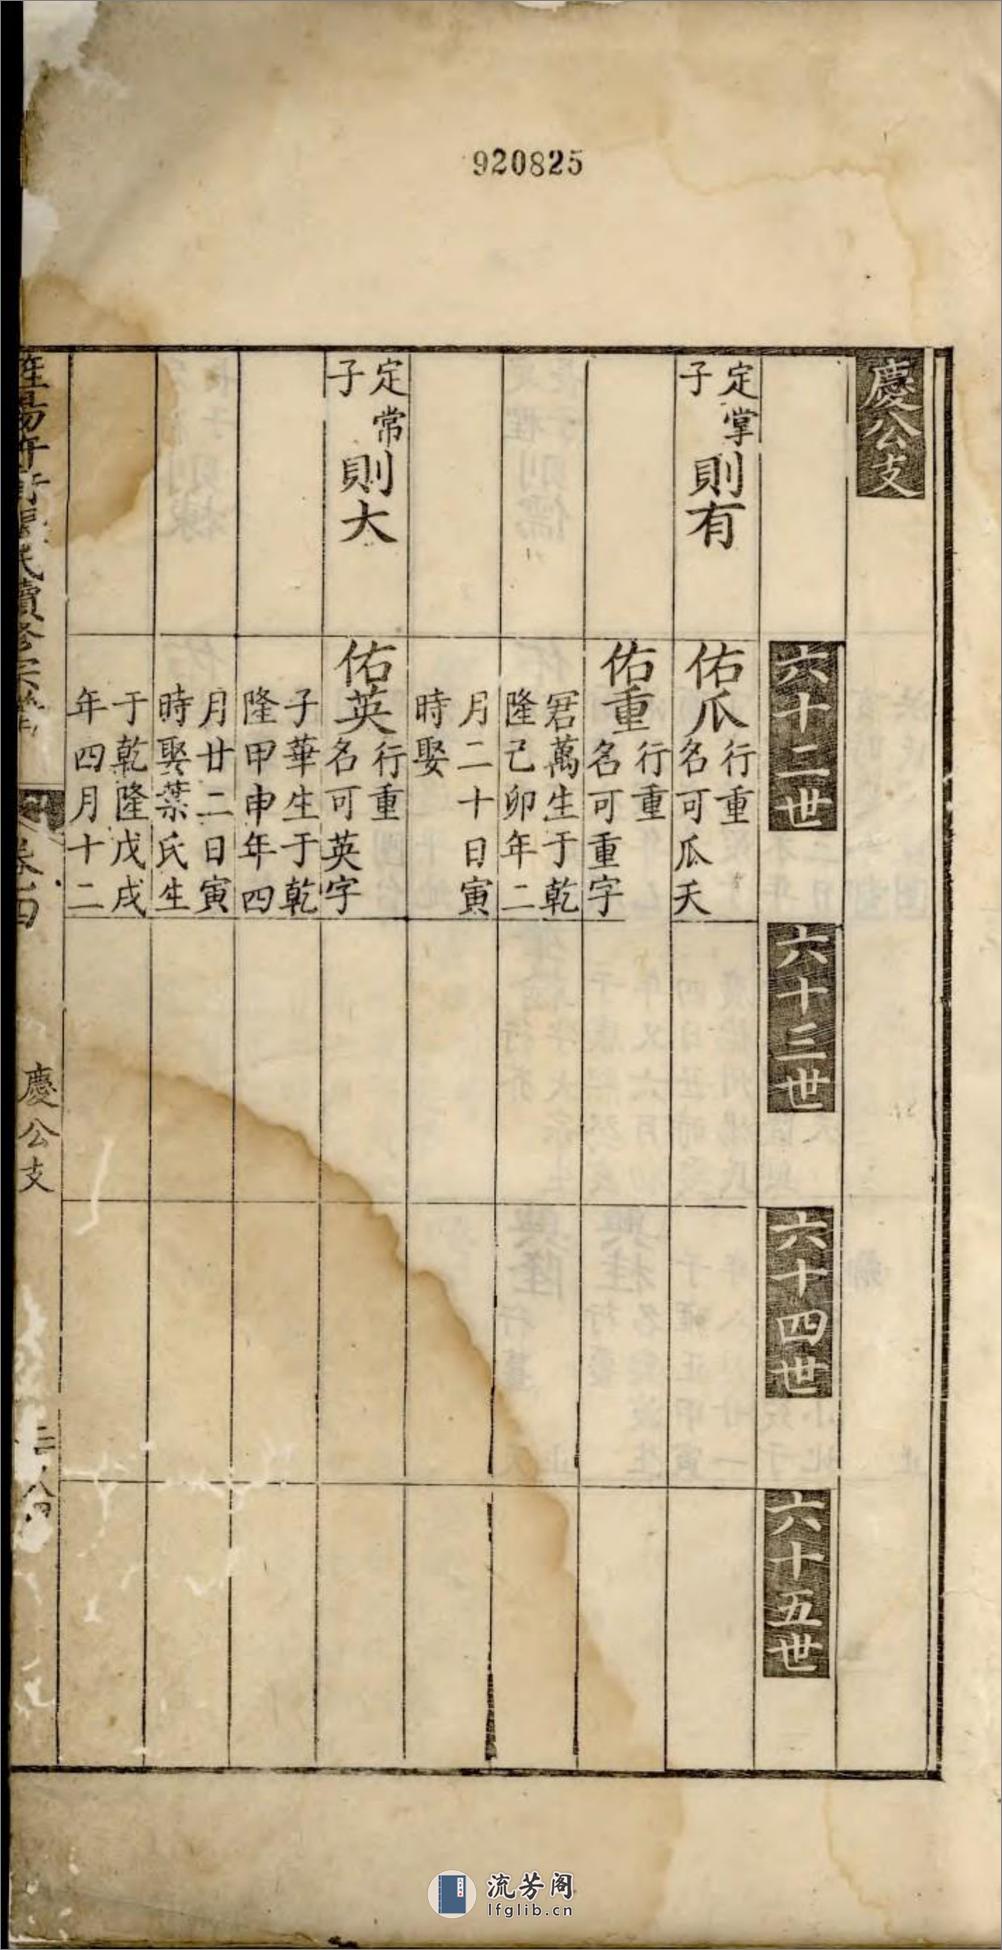 920825
慶公支
六十二世
六十三世
六十四世
六十五世
定掌
子
則有
佑瓜
行重
名可瓜夭
佑重
行重
名可重字
君萬生于乾
隆己卯年二
月二十日寅
時娶
定常
子
則大
佑英
行重
名可英字
子華生于乾
隆甲申年四
月廿二日寅
時娶葉氏生
于乾隆戊戌
年四月十二
氏續修宗譜
卷四
慶公支
流芳阁
lfglib.cn